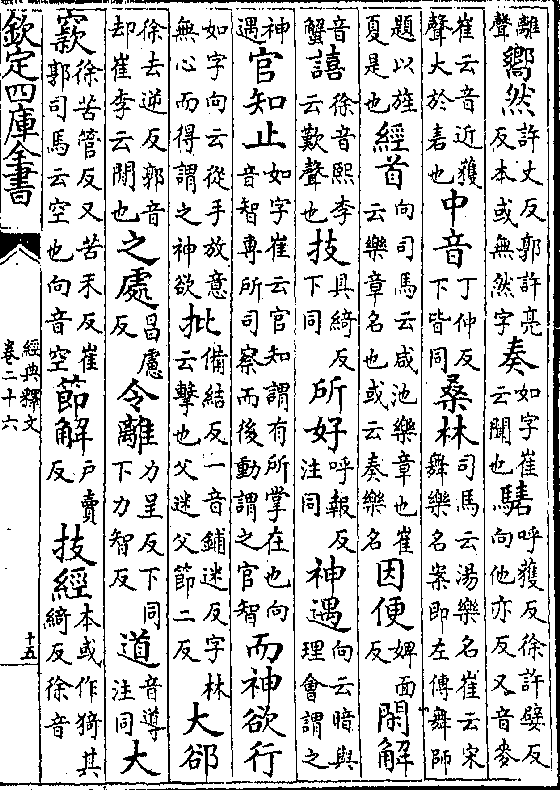 離聲嚮然許丈反郭許亮反本或無然字奏如字崔云聞也騞呼獲反徐許嬖反向他亦反又音麥
崔云音近獲聲大於砉也中音丁仲反下皆同桑林司馬云湯樂名崔云宋舞樂名案即左傳舞師
題以旌夏是也經首向司馬云咸池樂章也崔云樂章名也或云奏樂名因便婢面反閒解
音蟹譆徐音熙李云歎聲也技具綺反下同所好呼報反注同神遇向云暗與理會謂之
神遇官知止如字崔云官知謂有所掌在也向音智專所司察而後動謂之官智而神欲行
如字向云從手放意無心而得謂之神欲批備結反一音鋪迷反字林云擊也父迷父節二反大郤
徐去逆反郭音却崔李云閒也之處昌慮反令離力呈反下同下力智反道音導注同大
窾徐苦管反又苦禾反崔郭司馬云空也向音空節解戶賣反技經本或作猗其綺反徐音
欽定四庫全書
經典釋文
卷二十六
十五